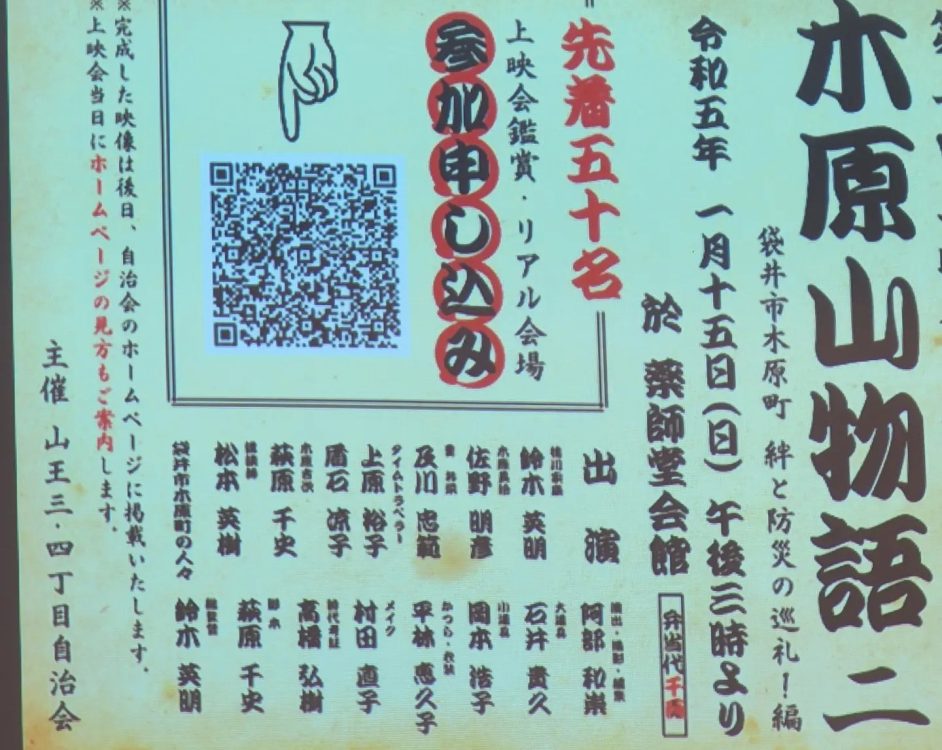 木原山物語 二
袋井市木原町 絆と防災の巡礼！編
令和五年 一月十五日(日) 午後三時より
於 薬師堂会館
弁当代千円
先着五十名
上映会鑑賞・リアル会場
参加申し込み
出演
徳川家康
鈴木 英明
佐野 明彦
及川 忠範
タイムトラベラー
上原 裕子
盾石 涼子
萩原 千史
松本 英樹
袋井市木原町の人々
演出・撮影・編集
阿部 和崇
大道具
石井 貴久
小道具
岡本 浩子
かつら・衣装
平林 恵久子
メイク
村田 直子
時代考証
高橋 弘樹
脚本
萩原 千史
総監督
鈴木 英明
※完成した映像は後日、自治会のホームページに掲載いたします。
※上映会当日にホームページの見方もご案内します。
主催 山王三・四丁目自治会